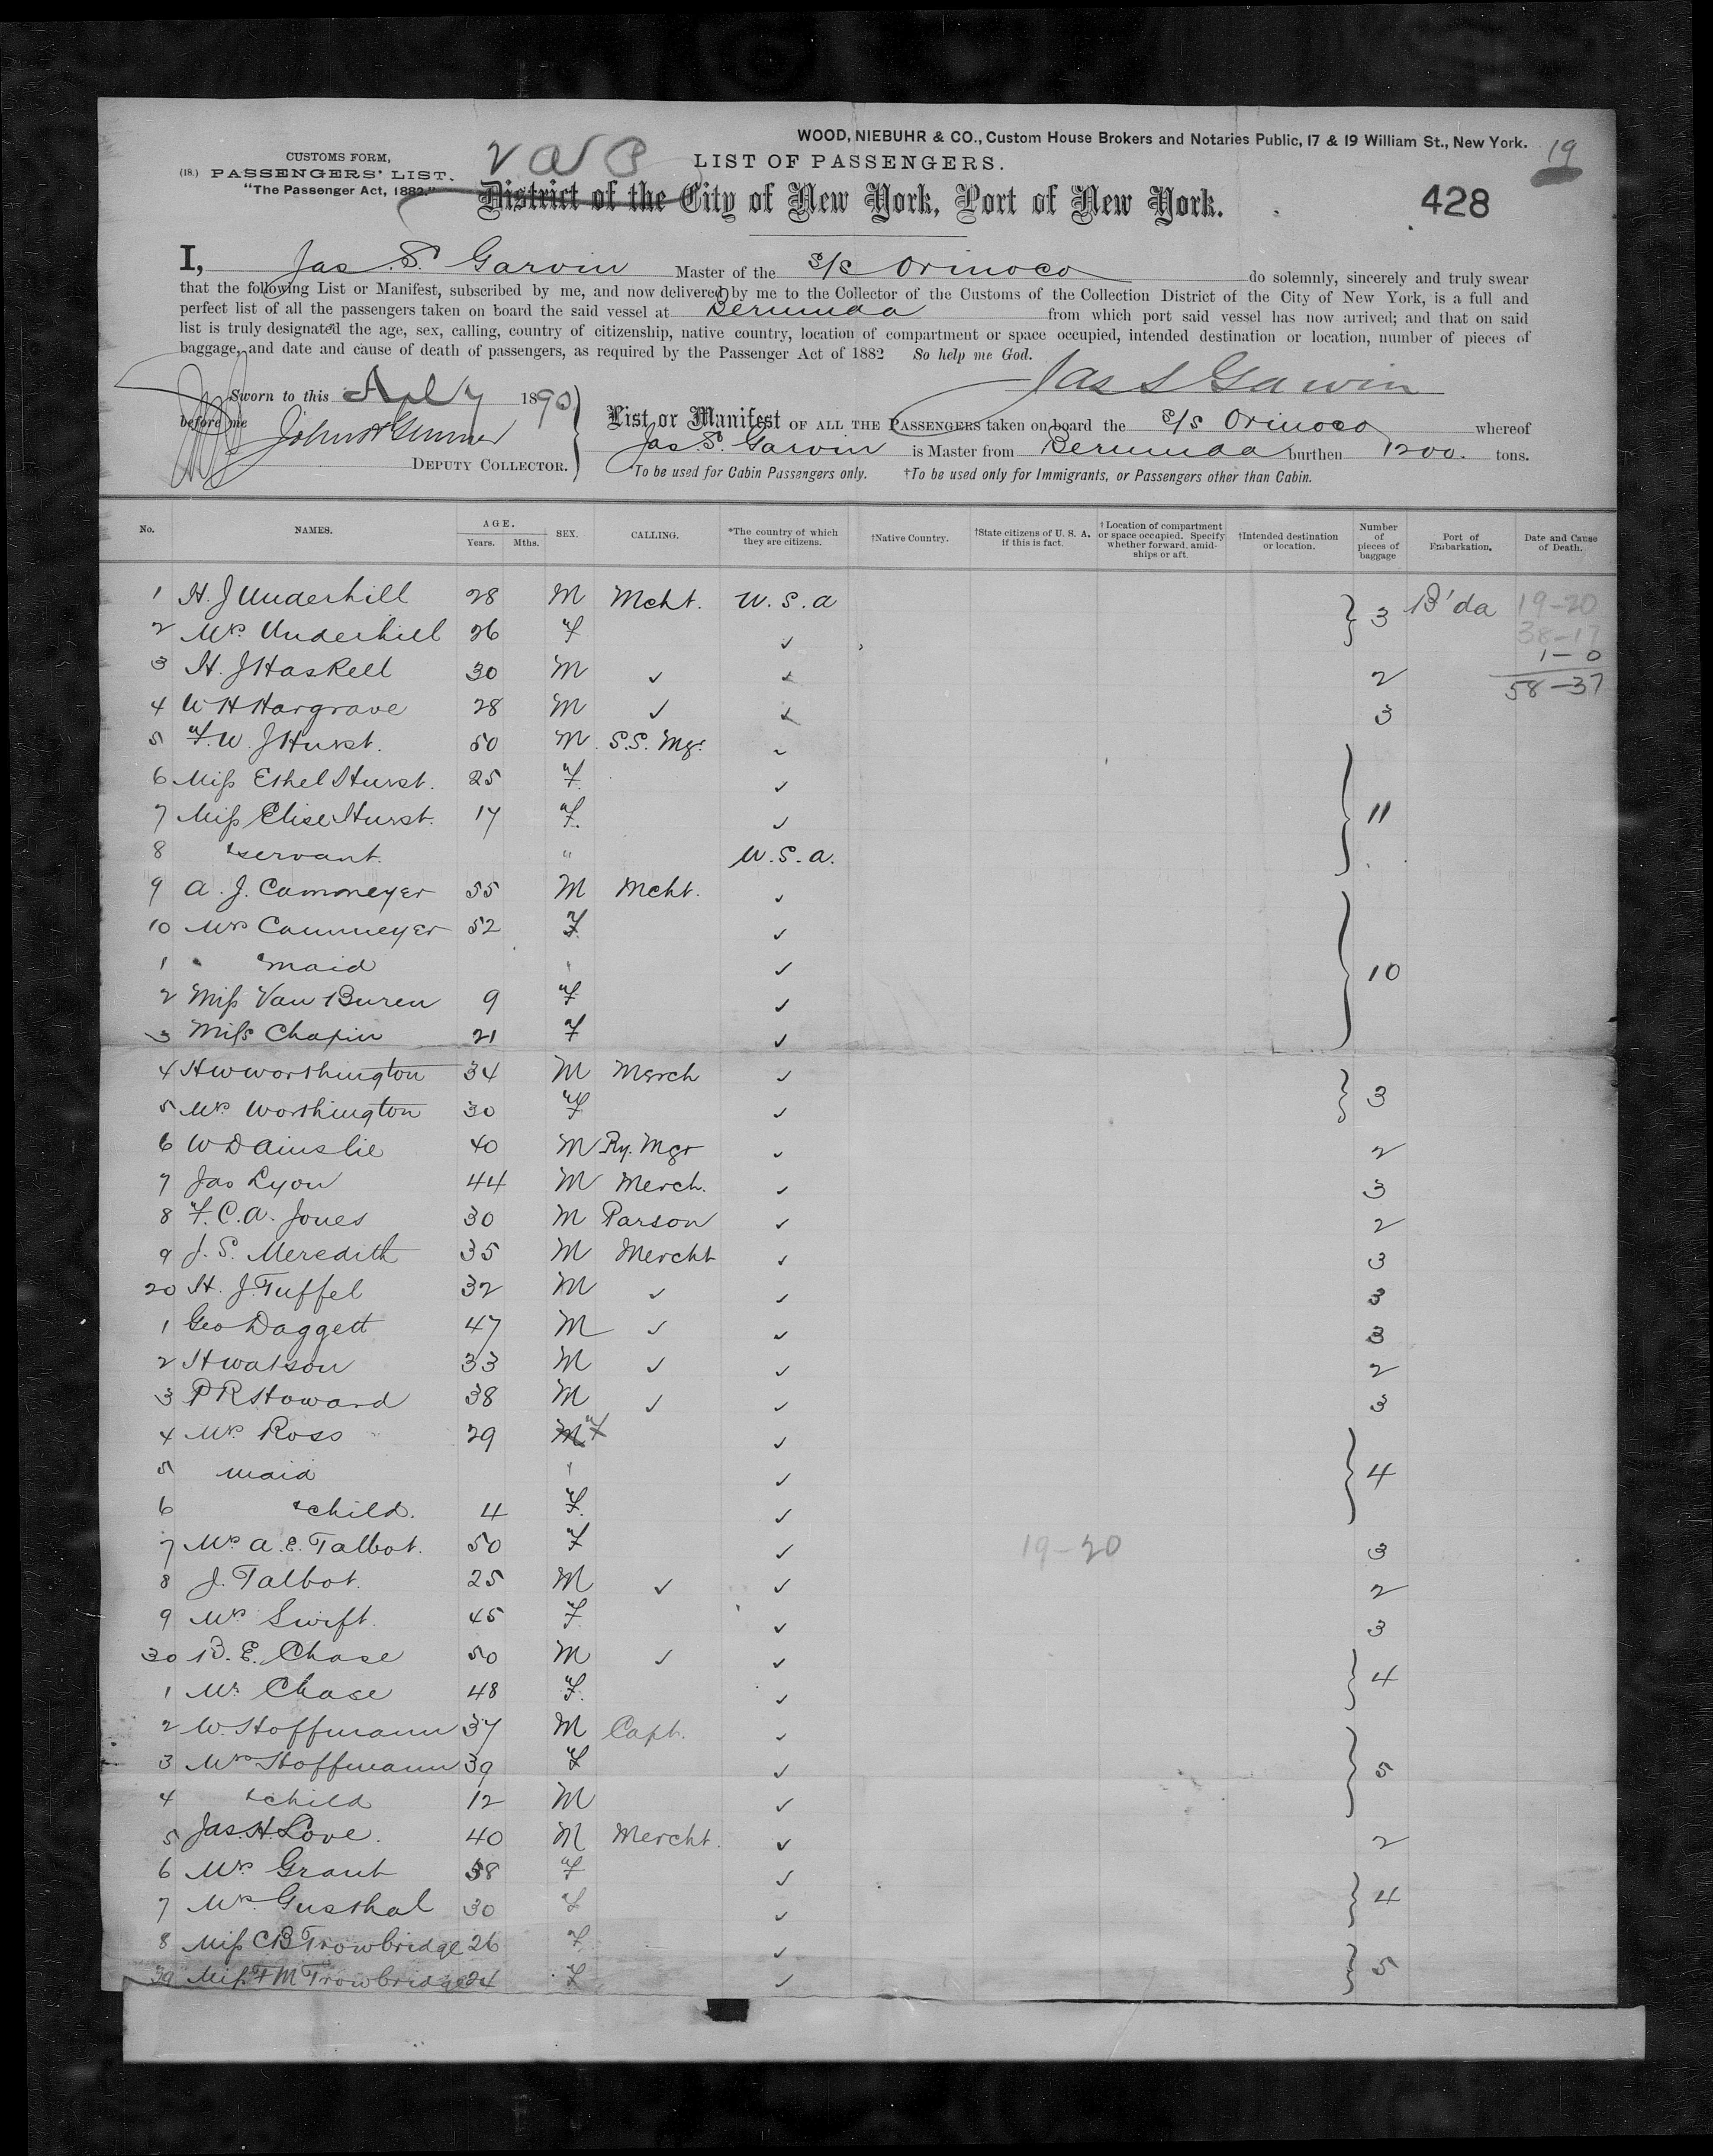 WOOD, NIEBUHR & CO., Custom House Brokers and Notaries Public, 17 & 19 William St., New York.
19
CUSTOMS FORM,
(18.) PASSENGERS' LIST.
"The Passenger Act, 1882."
LIST OF PASSENGERS.
District of the City of New York, Port of New York.
428
I, Jas. S. Garvin Master of the S/S Orinoco do solemnly, sincerely and truly swear
that the following List or Manifest, subscribed by me, and now delivered by me to the Collector of the Customs of the Collection District of the City of New York, is a full and
perfect list of all the passengers taken on board the said vessel at Bermuda from which port said vessel has now arrived; and that on said
list is truly designated the age, sex, calling, country of citizenship, native country, location of compartment or space occupied, intended destination or location, number of pieces of
baggage, and date and cause of death of passengers, as required by the Passenger Act of 1882 So help me God.
Jas S Garvin
Sworn to this Apl 7 1890
before me
DEPUTY COLLECTOR.
List or Manifest OF ALL THE PASSENGERS taken on board the S/S Orinoco whereof
Jas. S. Garvin is Master from Bermuda burthen 1200. tons.
*To be used for Cabin Passengers only. †To be used only for Immigrants, or Passengers other than Cabin.
No. NAMES. AGE. Years. Mths. SEX. CALLING. *The country of which they are citizens. †Native Country. †State citizens of U. S. A. if this is fact. †Location of compartment or space occupied. Specify whether forward, amidships or aft. †Intended destination or location. Number of pieces of baggage Port of Embarkation. Date and Cause of Death.
1 H. J Underhill 28 M Mcht. U.S.a } 3 B'da 19-20
2 Mrs Underhill 26 F ✓ 38-17
3 H. J Haskell 30 M ✓ ✓ 2 1-0
58-37
4 W H Hargrave 28 M ✓ ✓ 3
5 F. W. J Hurst. 50 M S.S. Mgr ✓
6 Miss Ethel Hurst. 25 F. ✓ } 11
7 Miss Elise Hurst. 17 F. ✓
8 & servant. " U.S.a.
9 A. J. Cammeyer 55 M Mcht. ✓
10 Mrs Cammeyer 52 F. ✓
1 & maid ✓ } 10
2 Miss Van Buren 9 F ✓
3 Miss Chapin 21 F ✓
4 H W Worthington 34 M Merch ✓ } 3
5 Mrs Worthington 30 F ✓
6 W D Ainslie 40 M Ry. Mgr ✓ 2
7 Jas Lyon 44 M Merch. ✓ 3
8 F. C. A. Jones 30 M Parson ✓ 2
9 J. S. Meredith 35 M Mercht ✓ 3
20 H. J. Tuffel 32 M ✓ ✓ 3
1 Geo Daggett 47 M ✓ ✓ 3
2 H Watson 33 M ✓ ✓ 2
3 P R Howard 38 M ✓ ✓ 3
4 Mrs Ross 29 F ✓
5 maid ✓ } 4
6 & child. 4 F. ✓
7 Mrs A. E. Talbot. 50 F ✓ 19-20 3
8 J. Talbot. 25 M ✓ ✓ 2
9 Mrs Swift. 45 F ✓ 3
30 B. E. Chase 50 M ✓ ✓ } 4
1 Mrs Chase 48 F. ✓
2 W. Hoffmann 37 M Capt. ✓
3 Mrs Hoffmann 39 F ✓ } 5
4 & child 12 M ✓
5 Jas. H. Love. 40 M Mercht. ✓ 2
6 Mrs Grant 38 F ✓ } 4
7 Mrs Gusthal 30 F ✓
8 Miss C B Trowbridge 26 F ✓ } 5
39 Miss F M Trowbridge 24 F ✓